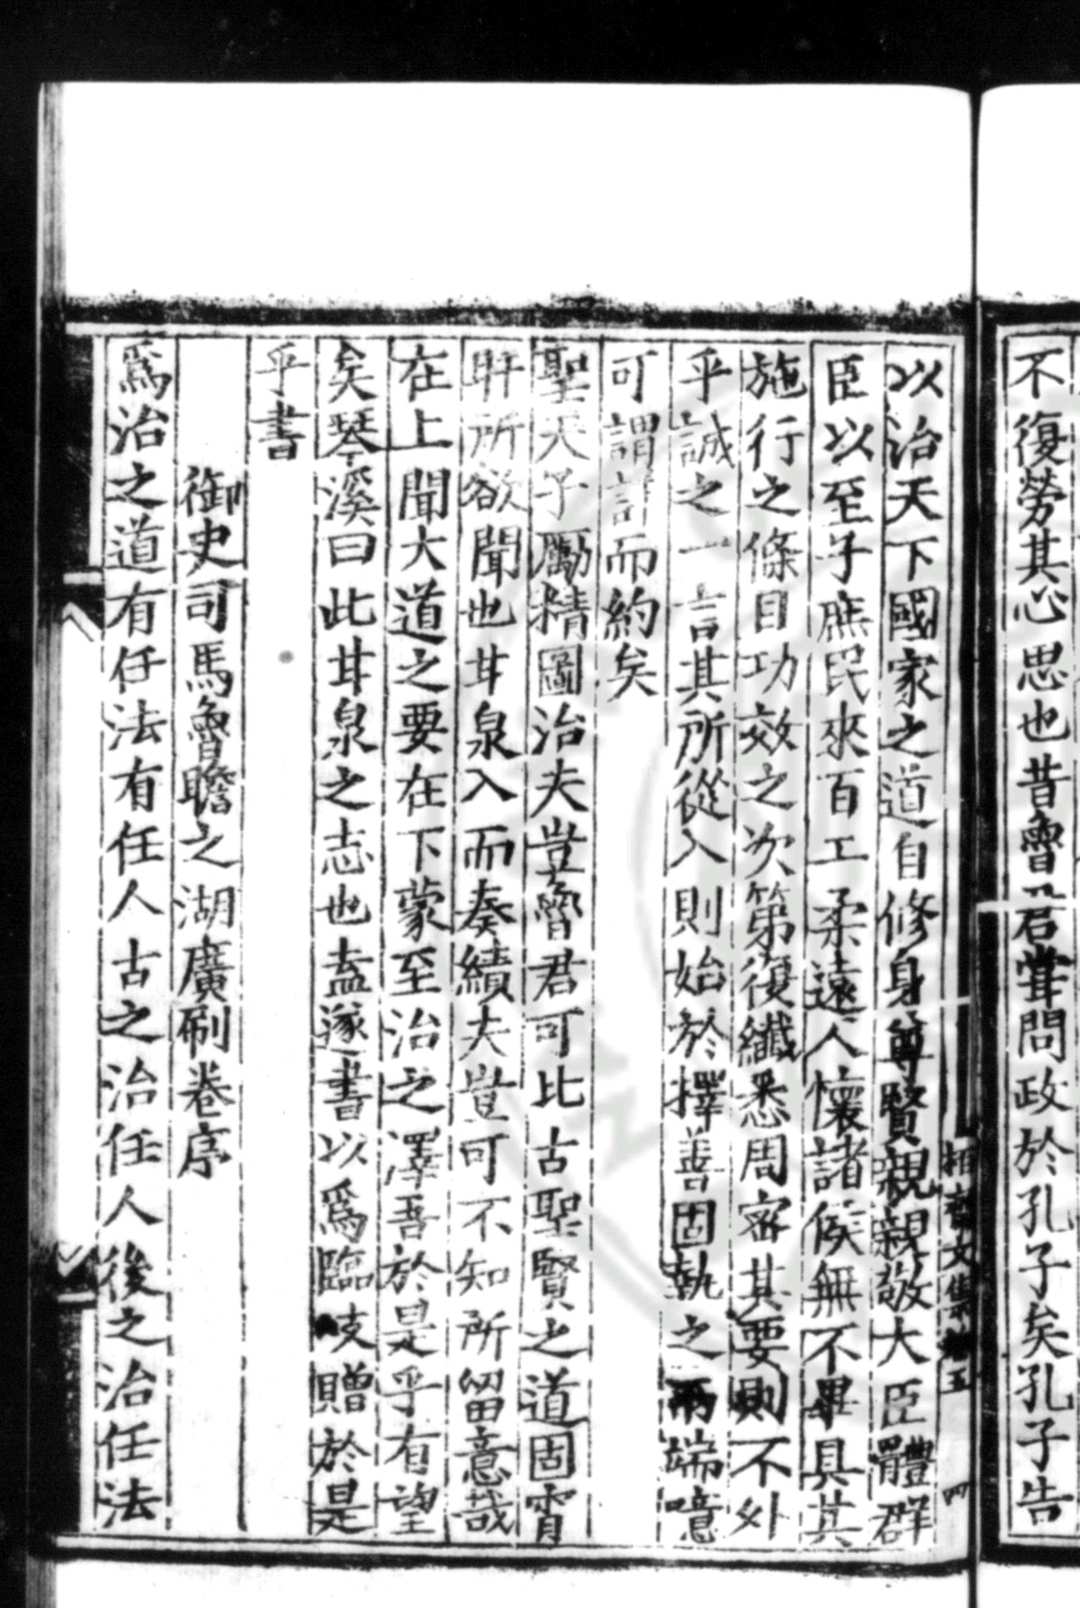 不復勞其心思也昔魯君嘗問政於孔子矣孔子告
栢齋文集卷五 四
以治天下國家之道自修身尊賢親親敬大臣體群
臣以至子庶民來百工柔遠人懷諸侯無不畢具其
施行之條目功效之次第復纖悉周密其要則不外
乎誠之一言其所從入則始於擇善固執之兩端噫
可謂詳而約矣
聖天子勵精圖治夫豈魯君可比古聖賢之道固宵
旰所欲聞也甘泉入而奏績夫豈可不知所留意哉
在上聞大道之要在下蒙至治之澤吾於是乎有望
矣琴溪曰此甘泉之志也盍遂書以爲臨岐贈於是
乎書
御史司馬魯瞻之湖廣刷卷序
爲治之道有任法有任人古之治任人後之治任法